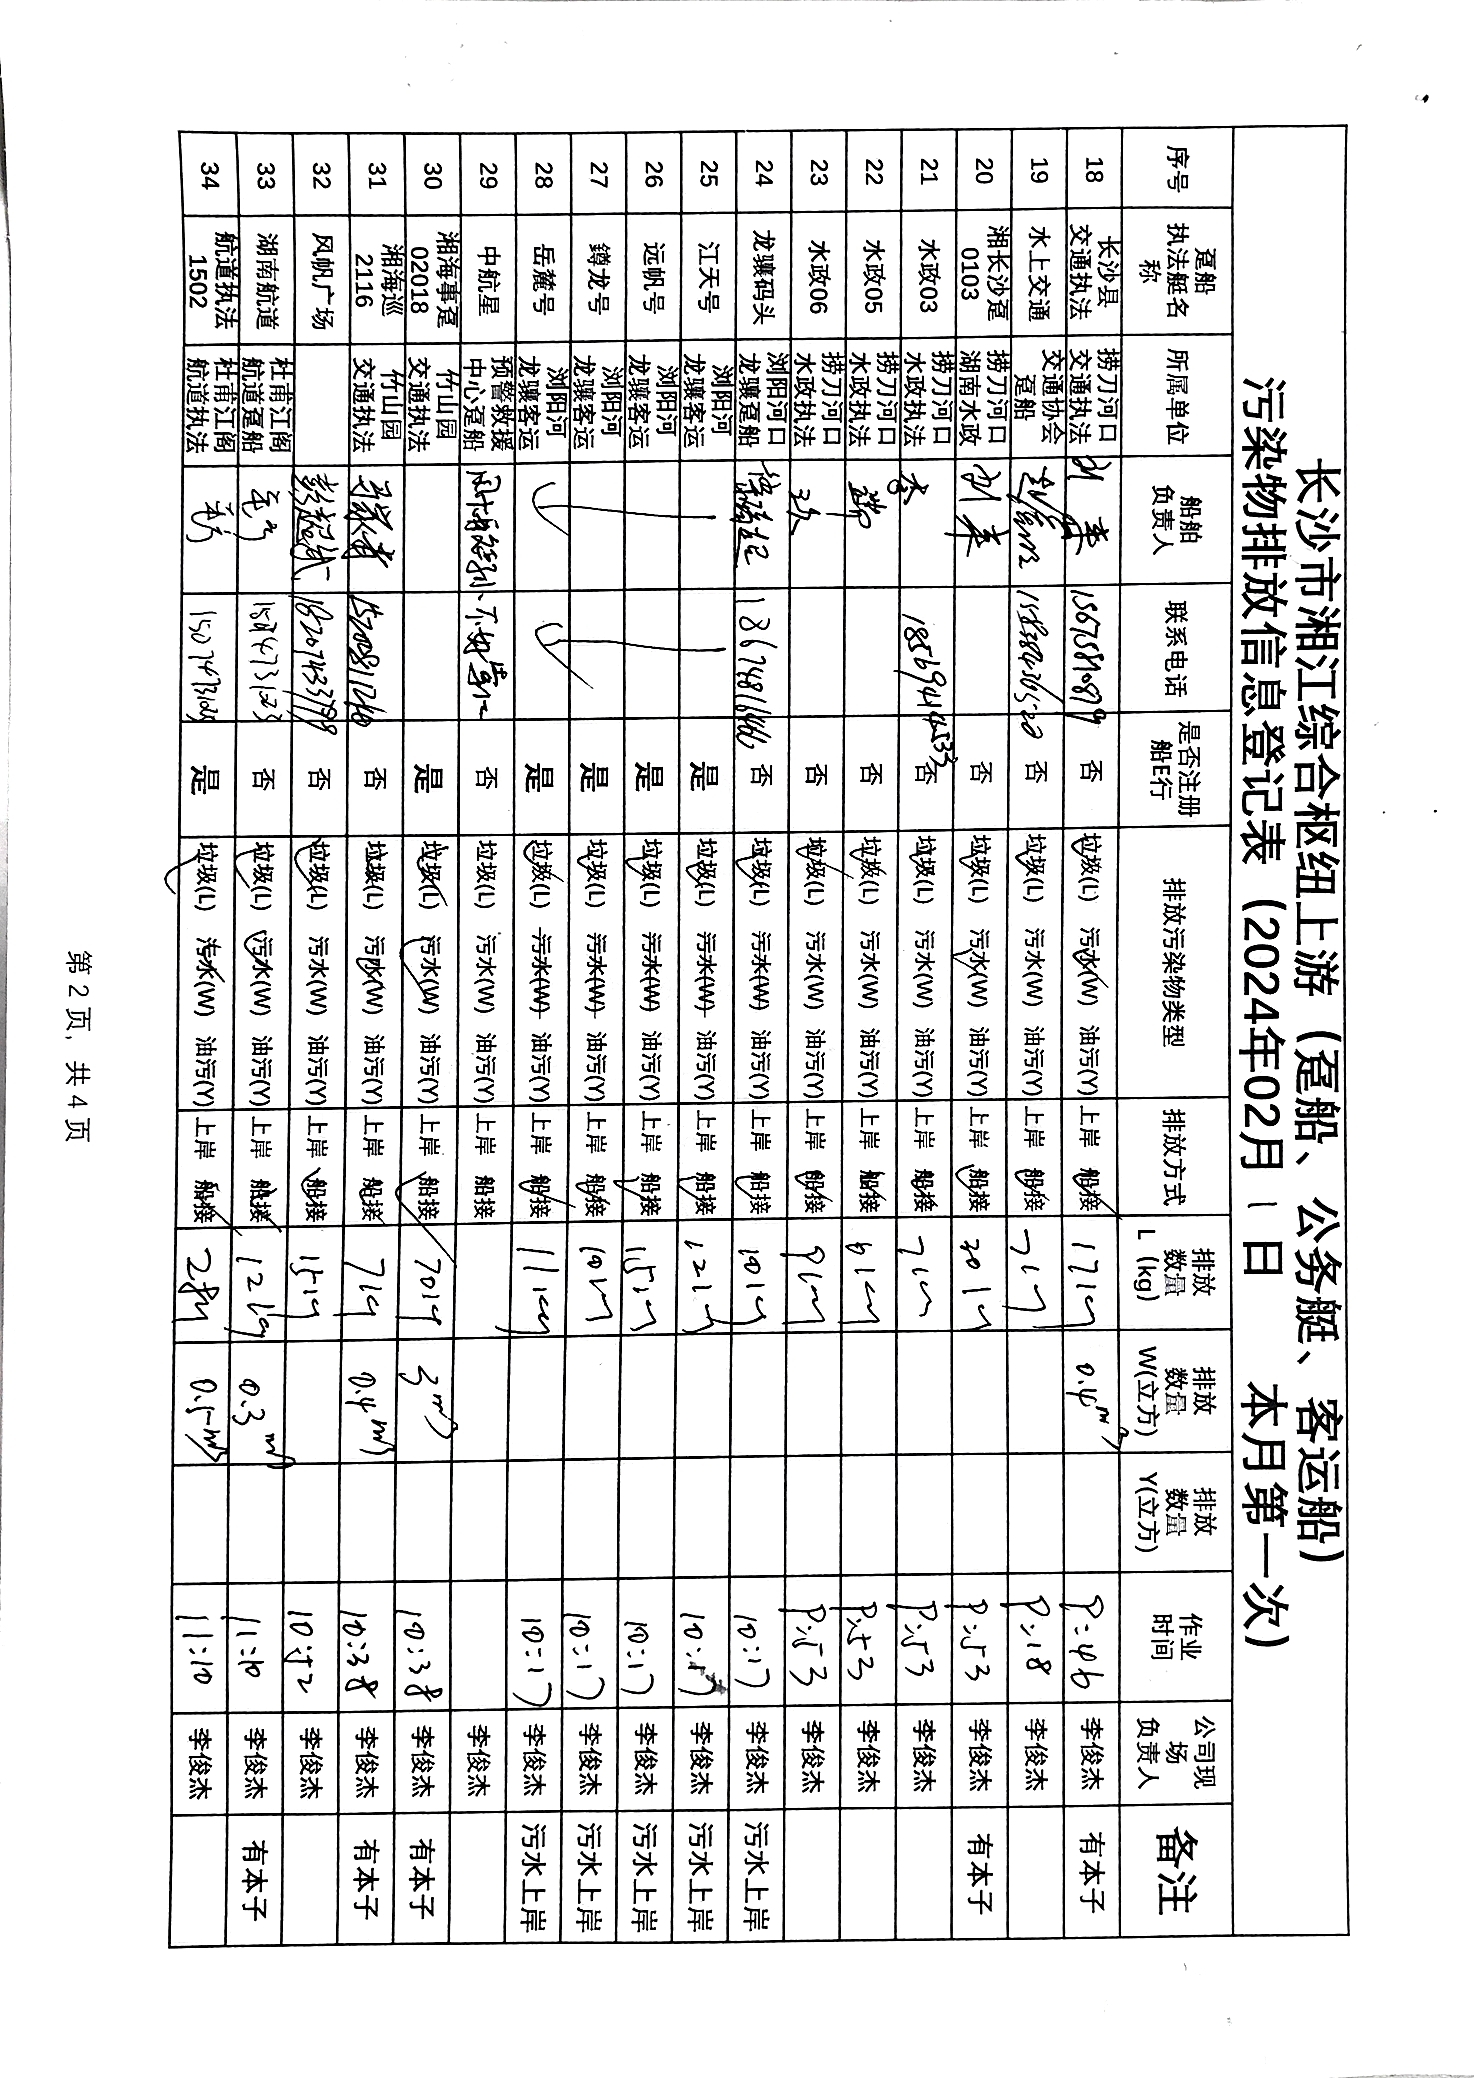 长沙市湘江综合枢纽上游（趸船、公务艇、客运船）
污染物排放信息登记表（2024年02月 1 日 本月第一次）
序号 趸船执法艇名称 所属单位 船舶负责人 联系电话 是否注册船E行 排放污染物类型 排放方式 排放数量L（kg） 排放数量W(立方) 排放数量Y(立方) 作业时间 公司现场负责人 备注
18 长沙县交通执法 捞刀河口交通执法 否 垃圾(L) 污水(W) 油污(Y) 上岸 船接 17kg 0.4m³ 李俊杰 有本子
19 水上交通 交通协会趸船 否 垃圾(L) 污水(W) 油污(Y) 上岸 船接 7kg 李俊杰
20 湘长沙趸0103 捞刀河口湖南水政 否 垃圾(L) 污水(W) 油污(Y) 上岸 船接 30kg 李俊杰 有本子
21 水政03 捞刀河口水政执法 否 垃圾(L) 污水(W) 油污(Y) 上岸 船接 7kg 李俊杰
22 水政05 捞刀河口水政执法 否 垃圾(L) 污水(W) 油污(Y) 上岸 船接 李俊杰
23 水政06 捞刀河口水政执法 否 垃圾(L) 污水(W) 油污(Y) 上岸 船接 李俊杰
24 龙骧码头 浏阳河口龙骧趸船 否 垃圾(L) 污水(W) 油污(Y) 上岸 船接 10kg 10:17 李俊杰 污水上岸
25 江天号 浏阳河龙骧客运 是 垃圾(L) 污水(W) 油污(Y) 上岸 船接 12kg 李俊杰 污水上岸
26 远帆号 浏阳河龙骧客运 是 垃圾(L) 污水(W) 油污(Y) 上岸 船接 15kg 10:17 李俊杰 污水上岸
27 鐏龙号 浏阳河龙骧客运 是 垃圾(L) 污水(W) 油污(Y) 上岸 船接 10kg 10:17 李俊杰 污水上岸
28 岳麓号 浏阳河龙骧客运 是 垃圾(L) 污水(W) 油污(Y) 上岸 船接 11kg 10:17 李俊杰 污水上岸
29 中航星 预警救援中心趸船 否 垃圾(L) 污水(W) 油污(Y) 上岸 船接 李俊杰
30 湘海事趸02018 竹山园交通执法 是 垃圾(L) 污水(W) 油污(Y) 上岸 船接 70kg 3m³ 10:38 李俊杰 有本子
31 湘海巡2116 竹山园交通执法 否 垃圾(L) 污水(W) 油污(Y) 上岸 船接 7kg 0.4m³ 10:38 李俊杰 有本子
32 风帆广场 否 垃圾(L) 污水(W) 油污(Y) 上岸 船接 15kg 10:52 李俊杰
33 湖南航道 杜甫江阁航道趸船 否 垃圾(L) 污水(W) 油污(Y) 上岸 船接 12kg 0.3m³ 11:10 李俊杰 有本子
34 航道执法1502 杜甫江阁航道执法 是 垃圾(L) 污水(W) 油污(Y) 上岸 船接 0.5m³ 11:10 李俊杰
第 2 页，共 4 页